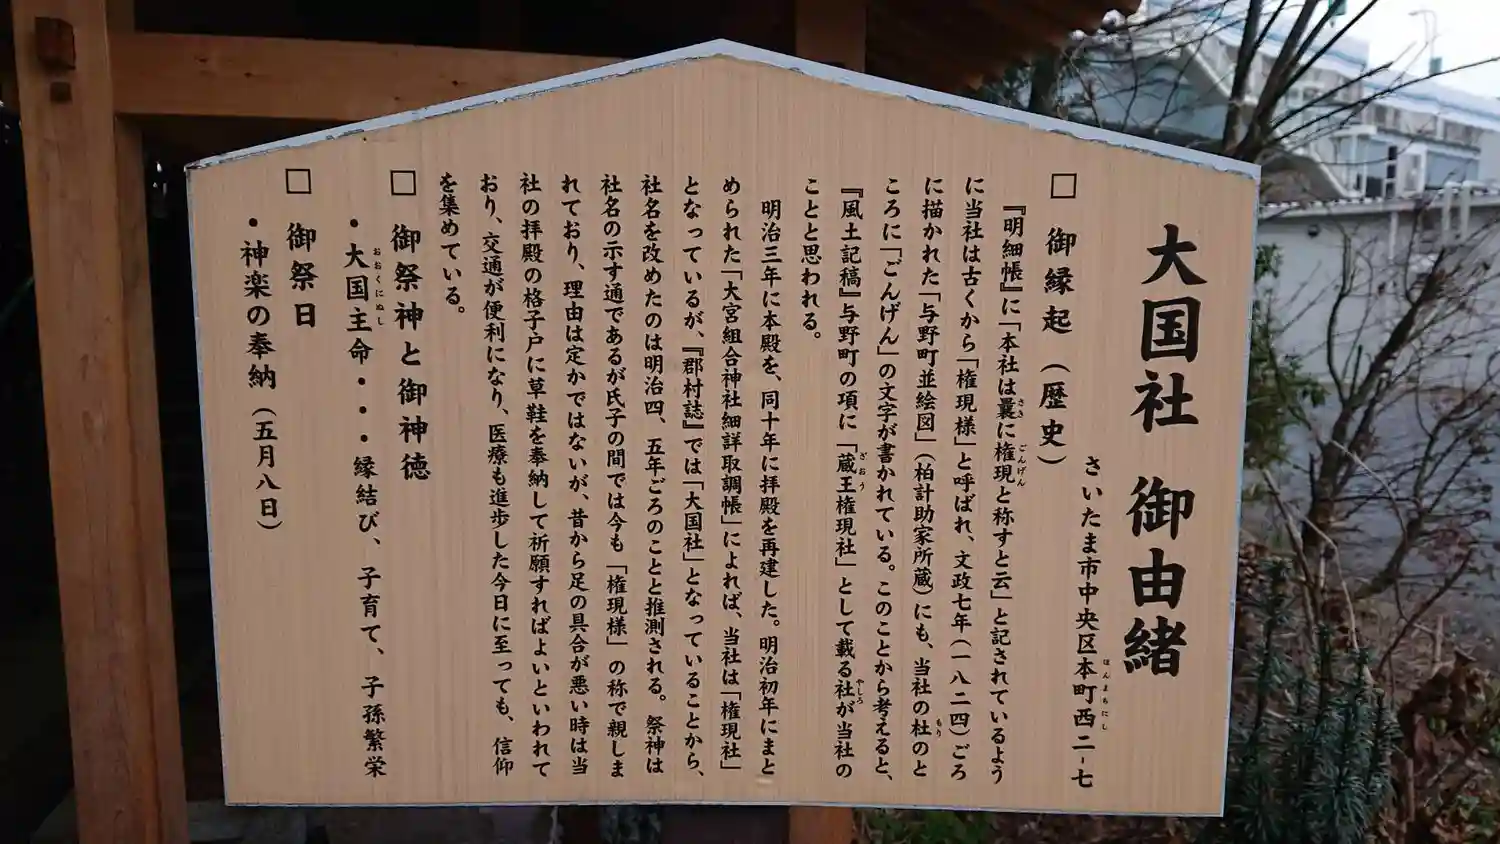 大国社 御由緒
さいたま市中央区本町西二-七
□ 御縁起(歴史)
『明細帳』に「本社は曩に権現と称すと云」と記されているよう
に当社は古くから「権現様」と呼ばれ、文政七年(一八二四)ごろ
に描かれた「与野町並絵図」(柏計助家所蔵)にも、当社の杜のと
ころに「ごんげん」の文字が書かれている。このことから考えると、
『風土記稿』与野町の項に「蔵王権現社」として載る社が当社の
ことと思われる。
明治三年に本殿を、同十年に拝殿を再建した。明治初年にまと
められた「大宮組合神社細詳取調帳」によれば、当社は「権現社」
となっているが、『郡村誌』では「大国社」となっていることから、
社名を改めたのは明治四、五年ごろのことと推測される。祭神は
社名の示す通であるが氏子の間では今も「権現様」の称で親しま
れており、理由は定かではないが、昔から足の具合が悪い時は当
社の拝殿の格子戸に草鞋を奉納して祈願すればよいといわれて
おり、交通が便利になり、医療も進歩した今日に至っても、信仰
を集めている。
□ 御祭神と御神徳
・大国主命・・・縁結び、子育て、子孫繁栄
□ 御祭日
・神楽の奉納(五月八日)